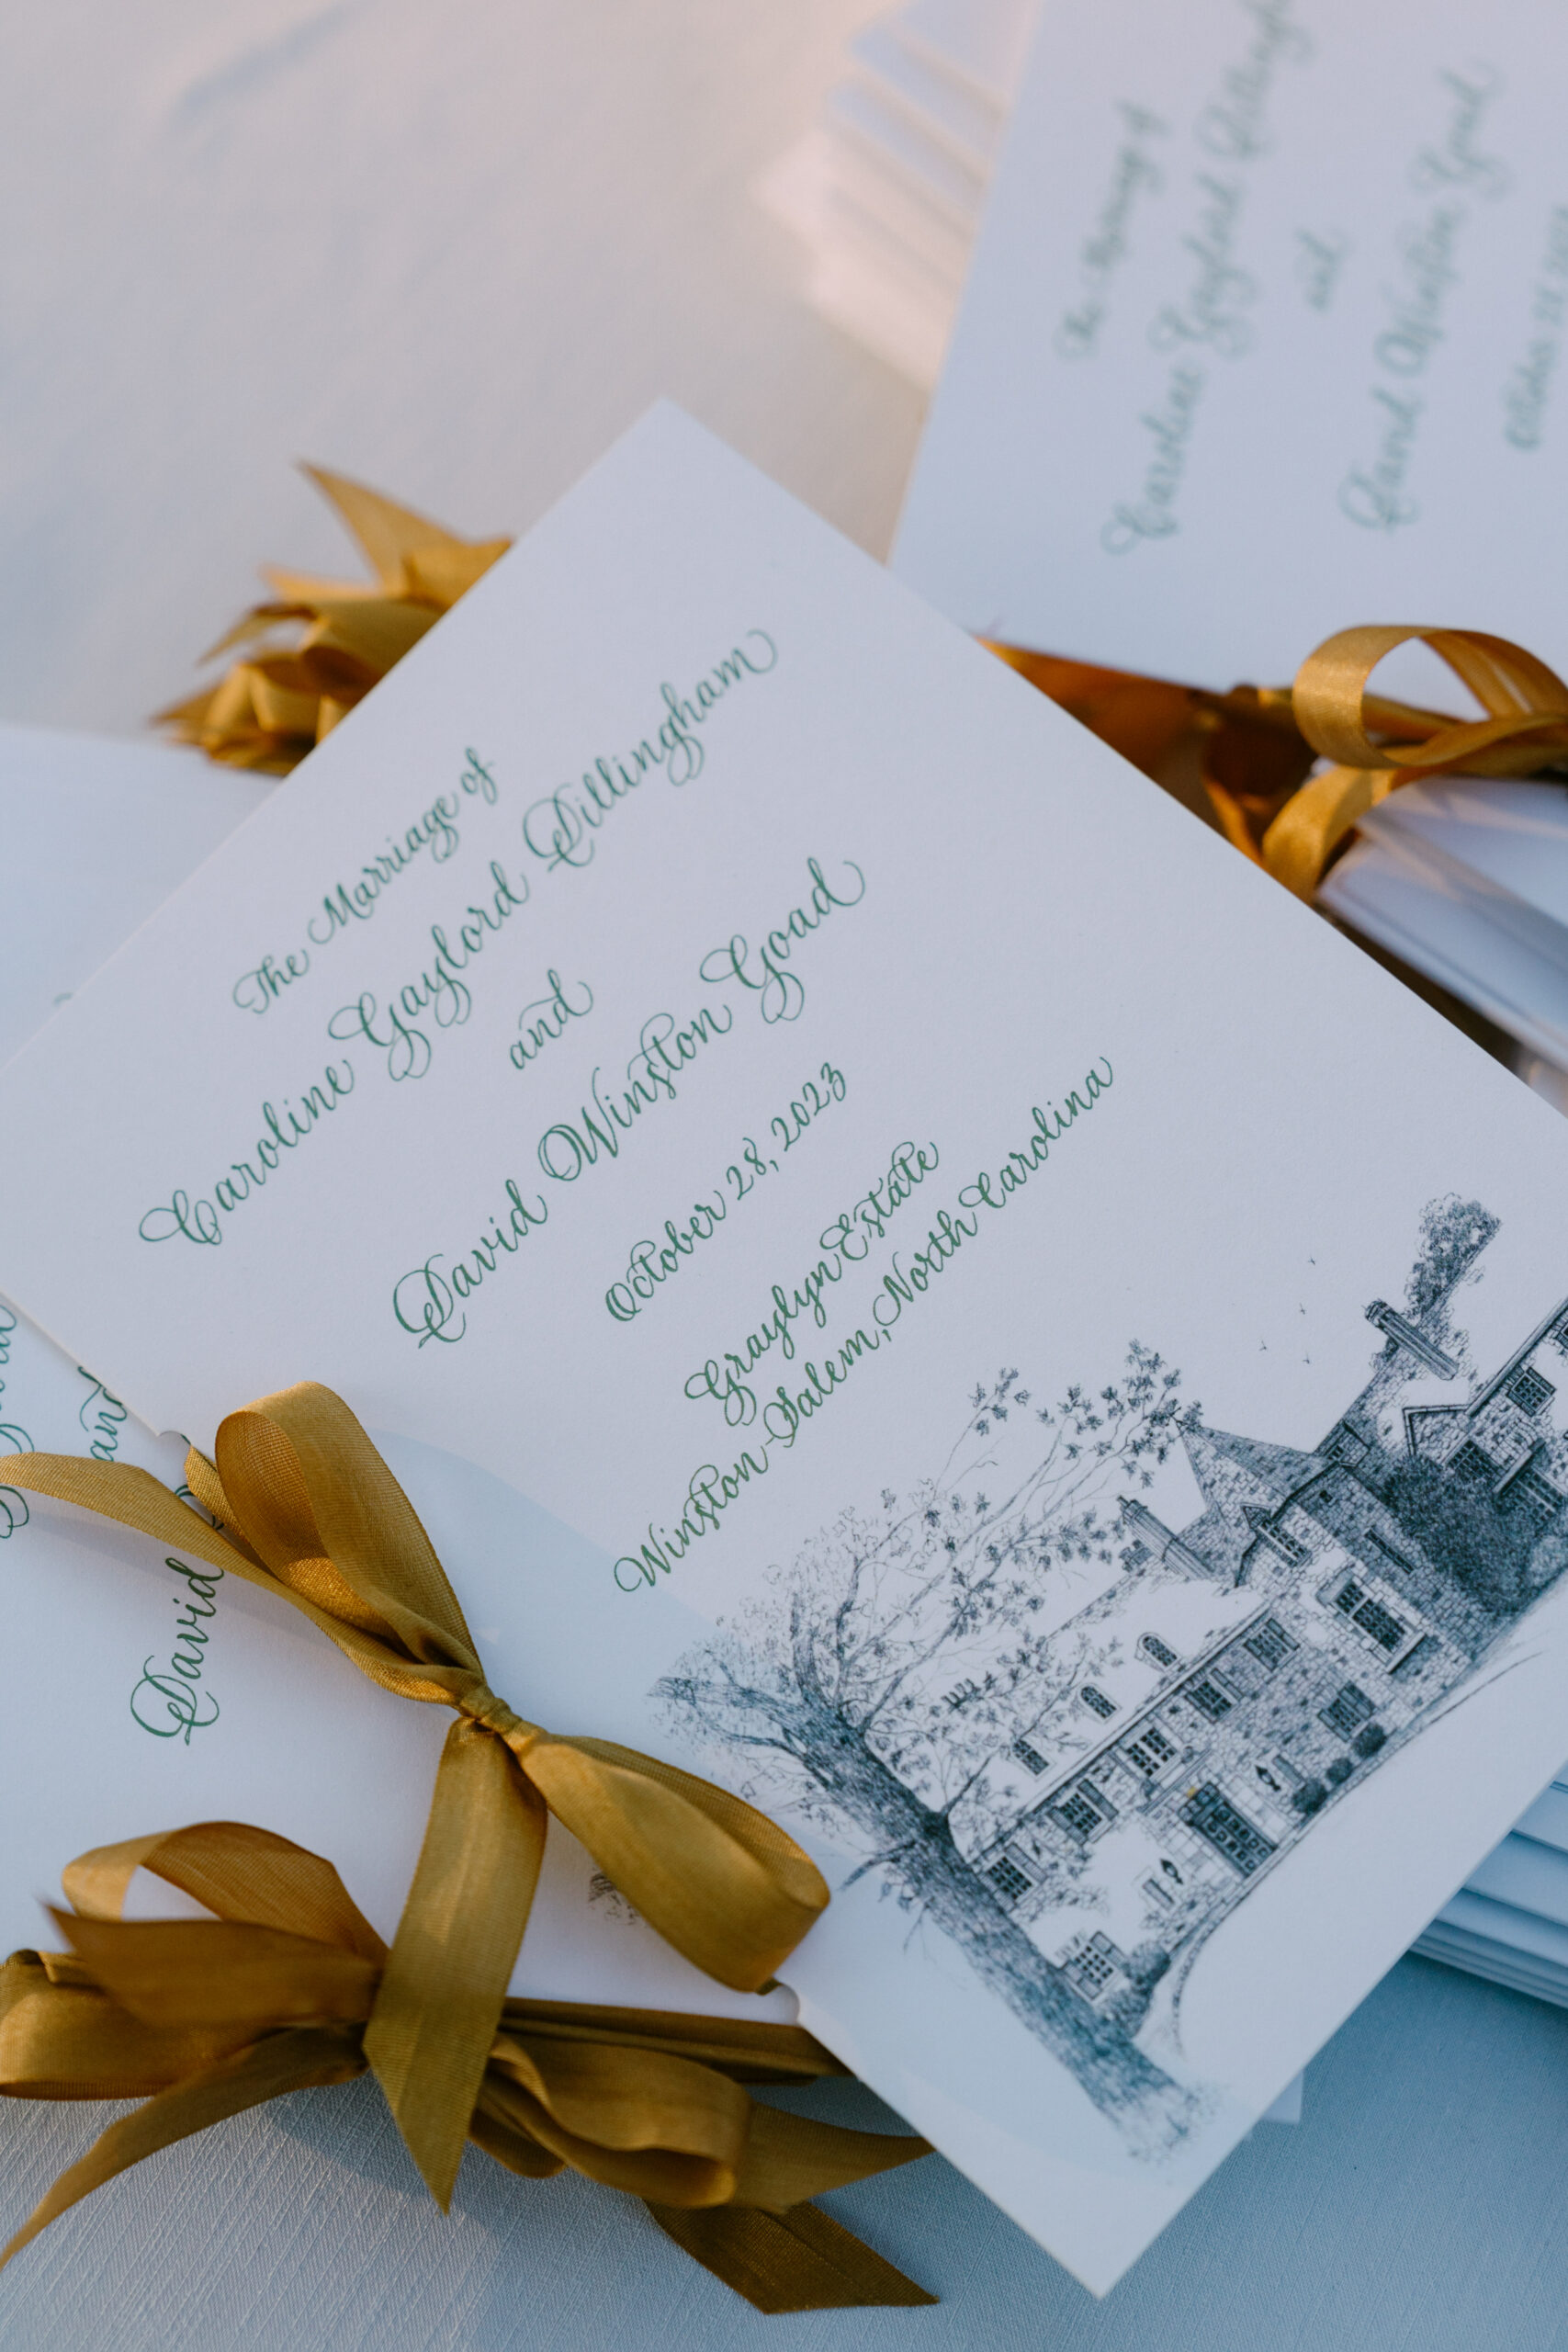 The Marriage of
Caroline Gaylord Dillingham
and
David Winston Goad
October 28, 2023
Graylyn Estate
Winston-Salem, North Carolina
The Marriage of
Caroline Gaylord
and
David Winston Goad
and
David